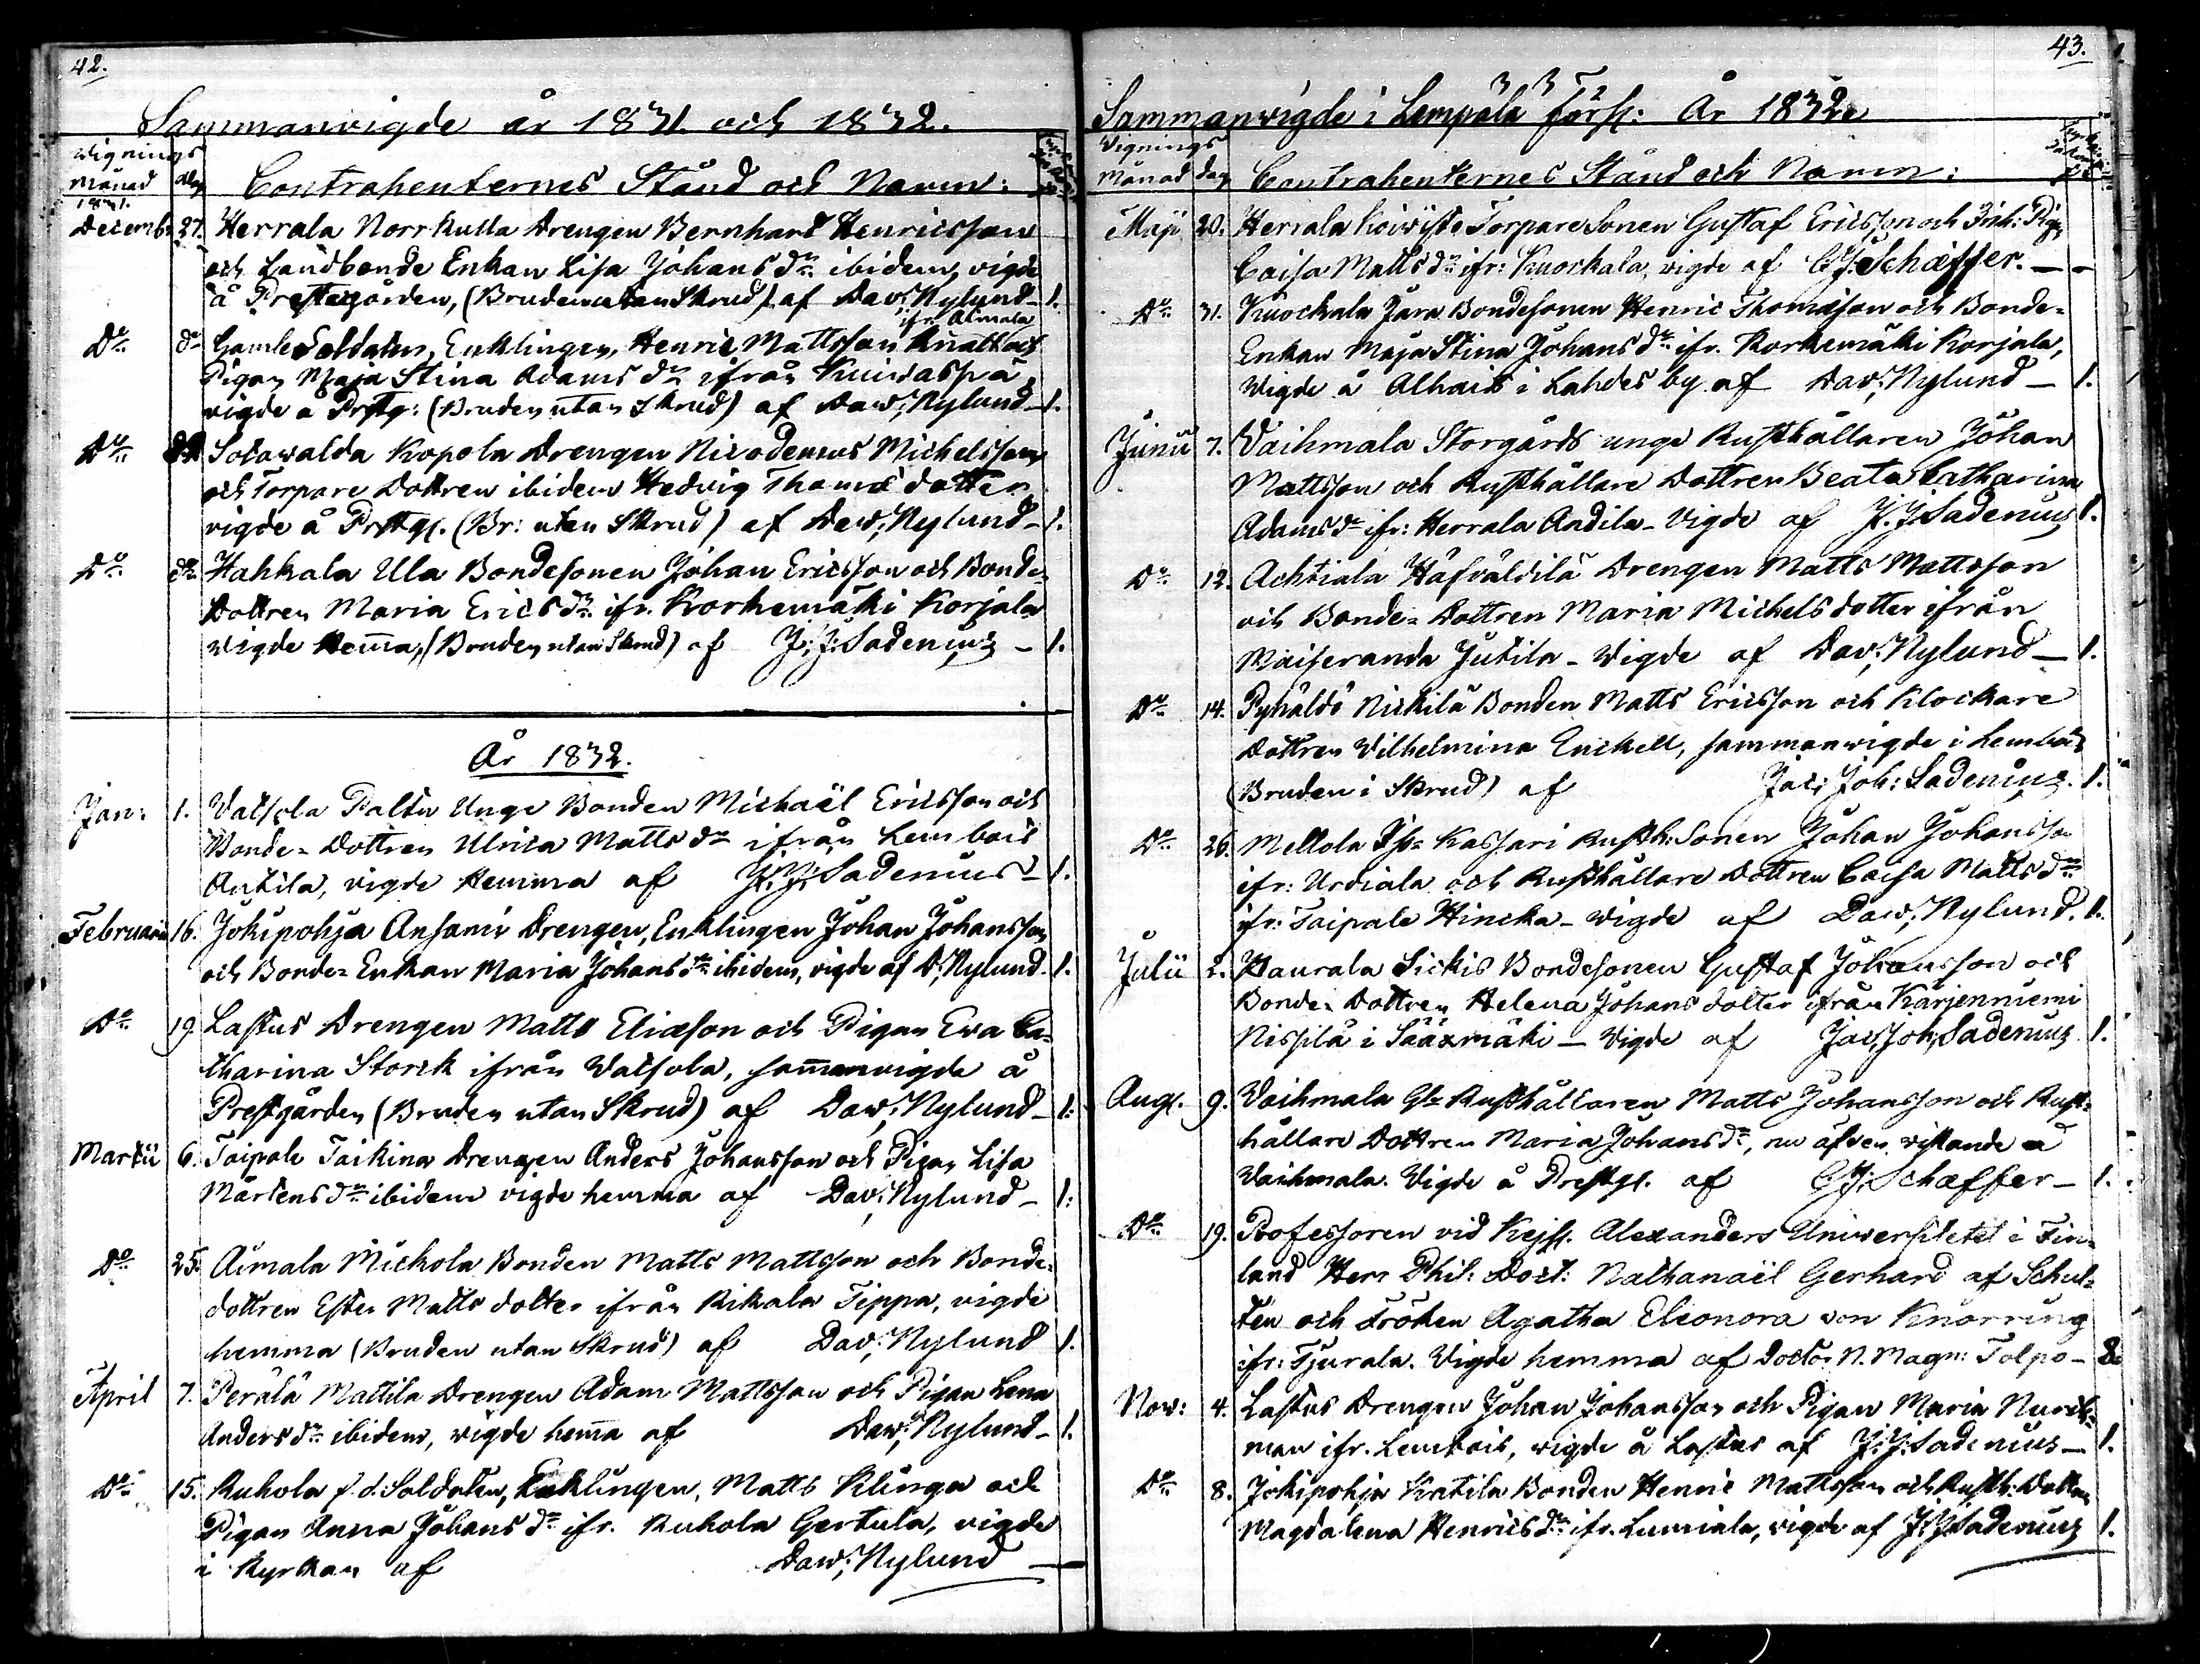 42.
Sammanvigde år 1831. och 1832.
Wignings
Månad dag Contrahenternes Stånd och Namn:
1831.
Decemb: 27. Herrala Norrkulla Drengen Bernhard Henricsson
och Landbonde Enkan Lisa Johans dr ibidem, vigde
å Prestegården, (Bruden utan Skrud) af Dav: Nylund - 1.
ifr. Aimala
Do do Gamle Soldaten, Enklingen, Henric Mattsson Knall och
Pigan Maja Stina Adams dr ifrån
vigde å Prstg: (Bruden utan Skrud) af Daw: Nylund - 1.
Do Sotavalda Kopola Drengen Nicodemus Michelsson
och Torpare Dottren ibidem Hedvig Thomæ dotter
vigde å Prstg. (Br: utan Skrud) af Daw: Nylund - 1.
Do do Hahkala Ulla Bondesonen Johan Ericsson och Bonde-
Dottren Maria Erics dr ifr. Korkemäki Korjala
vigde Hema, (Bruden utan Skrud) af J: J: Sadenius - 1.
År 1832.
Jan: 1. Valsola Paltu Unge Bonden Michaël Ericsson och
Bonde- Dottren Ulrica Matts dr ifrån Lembois
Antila, vigde Hemma af J: J: Sadenius - 1.
Februarii 16. Jokipohja Ansomi Drengen, Enklingen Johan Johansson
och Bonde- Enkan Maria Johans dr ibidem, vigde af D: Nylund. 1.
Do 19. Lastus Drengen Matts Eliæson och Pigan Eva Ca-
tharina Storck ifrån Valsola, samanvigde å
Prestgården (Bruden utan Skrud) af Daw: Nylund - 1.
Martii 6. Taipale Taikina Drengen Anders Johansson och Pigan Lisa
Mårtens dr ibidem vigde hemma af Dav: Nylund - 1:
Do 25. Aimala Mickola Bonden Matts Mattsson och Bonde-
dottren Ester Matts dotter ifrån Rikala Tippa, vigde
hemma (Bruden utan Skrud) af Dav: Nylund 1.
April 7. Perälä Mattila Drengen Adam Mattsson och Pigan Lena
Anders dr ibidem, vigde hema af Daw: Nylund - 1.
Do 15. Kuhola f. d. Soldaten, Enklingen, Matts Klinga och
Pigan Anna Johans dr ifr. Kuhola Gertula, vigde
i Kyrkan af Daw: Nylund —
43.
Sammanvigde i Lempälä Förs: År 1832.
Wignings
Månad dag Contrahenternes Stånd och Namn:
Maji 20. Herrala Koiviste Torpare Sonen Gustaf Ericsson och Pig:
Caisa Matts dr ifr: Kuockala, vigde af G: J: Schæffer. —
Do 31. Kuockala Jära Bondesonen Henric Thomæson och Bonde-
Enkan Maja Stina Johans dr ifr. Korkemäki Korjala,
Vigde å Alhais i Lahdes by af Dav: Nylund — 1.
Junii 7. Vaihmala Storgårds unge Rusthållaren Johan
Mattsson och Rusthållare Dottren Beata Catharina
Adams dr ifr: Herrala Andila - Vigde af J. J. Sadenius 1.
Do 12. Achtiala Håfvåldilä Drengen Matts Mattsson
och Bonde- Dottren Maria Michels dotter ifrån
Maiseranda Jutila - Vigde af Dav: Nylund — 1.
Do 14. Pyhäldö Nickilä Bonden Matts Ericsson och Klockare
Dottren Vilhelmina Enckell, sammanvigde i Lembois
(Bruden i Skrud) af Jac: Joh: Sadenius. 1.
Do 26. Mellola Kassari Rusth: Sonen Johan Johansson
ifr: Urdiala och Rusthållare Dottren Caisa Matts dr
ifr: Taipale Hincka - Vigde af Daw: Nylund. 1.
Julii 2. Haurala Sickis Bondesonen Gustaf Johansson och
Bonde- Dottren Helena Johans dotter ifrån Karjenniemi
Nispilä i Sääxmäki — Vigde af Jac: Joh: Sadenius 1.
Aug. 9. Vaihmala Rusthållaren Matts Johansson och Rust-
hållare Dottren Maria Johans dr, nu äfven vistande å
Vaihmala. Vigde å Prestg. af G: J: Schæffer - 1.
Do 19. Professoren vid Kejs. Alexanders Universitetet i Fin-
land Herr Phil: Doct: Nathanaël Gerhard af Schul-
tén och Fröken Agatha Eleonora von Knorring
ifr: Tjurala. Vigde hemma af Doctor N. Magn: Tolpo -
Nov: 4. Lastus Drengen Johan Johansson och Pigan Maria
man ifr. Lembois, vigde å Lastus af J: J: Sadenius — 1.
Do 8. Jokipohja Kratila Bonden Henric Mattsson och Rusth: Dottren
Magdalena Henrics dr ifr. Lumiala, vigde af J: J: Sadenius 1.